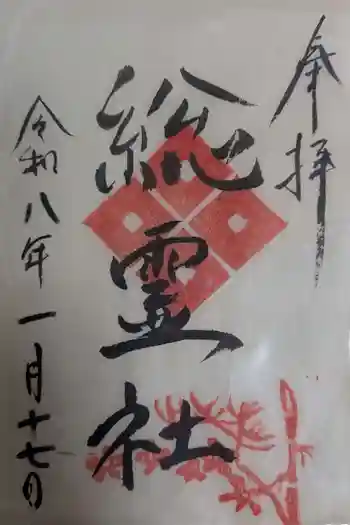 奉拝
総霊社
令和八年一月十七日